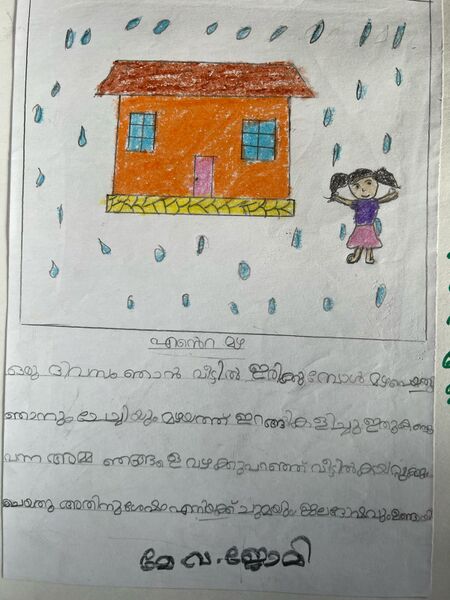 എൻ്റെ മഴ
ഒരു ദിവസം ഞാൻ വീട്ടിൽ ഇരിക്കുമ്പോൾ മഴപെയ്തു
ഞാനും ചേച്ചിയും മഴയത്ത് ഇറങ്ങികളിച്ചു ഇതുകണ്ടു
വന്ന അമ്മ ഞങ്ങളെ വഴക്കുപറഞ്ഞ് വീട്ടിൽകയറ്റുകയും
ചെയതു അതിനുശേഷം എനിയക്ക് ചുമയും ജലദോഷവുംഉണ്ടായി